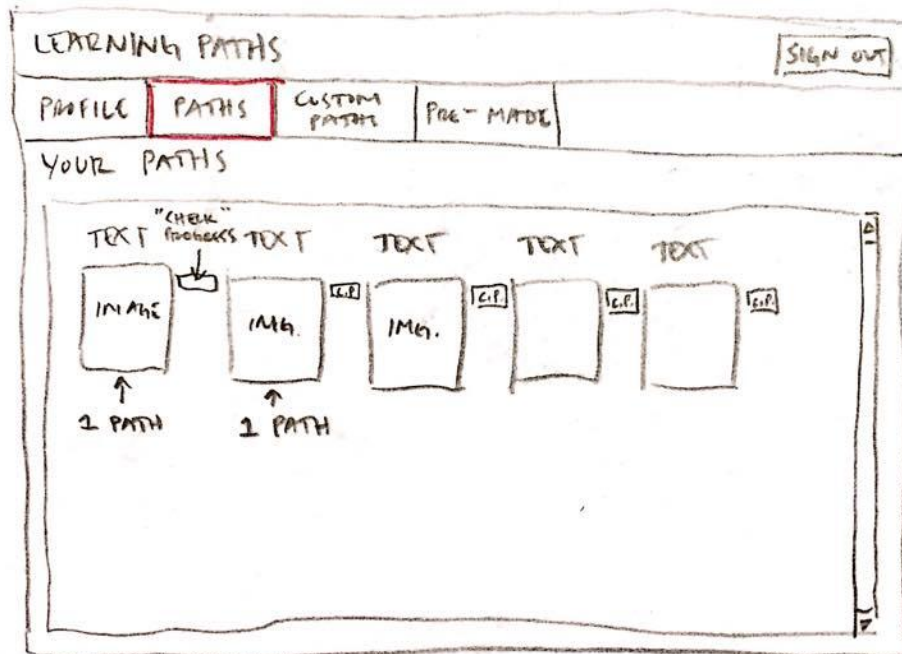 LEARNING PATHS
SIGN OUT
PROFILE
PATHS
CUSTOM
PATHS
PRE-MADE
YOUR PATHS
"CHECK"
PROGRESS
TEXT
TEXT
TEXT
TEXT
TEXT
IMAGE
IMG.
C.P.
IMG.
C.P.
C.P.
C.P.
1 PATH
1 PATH